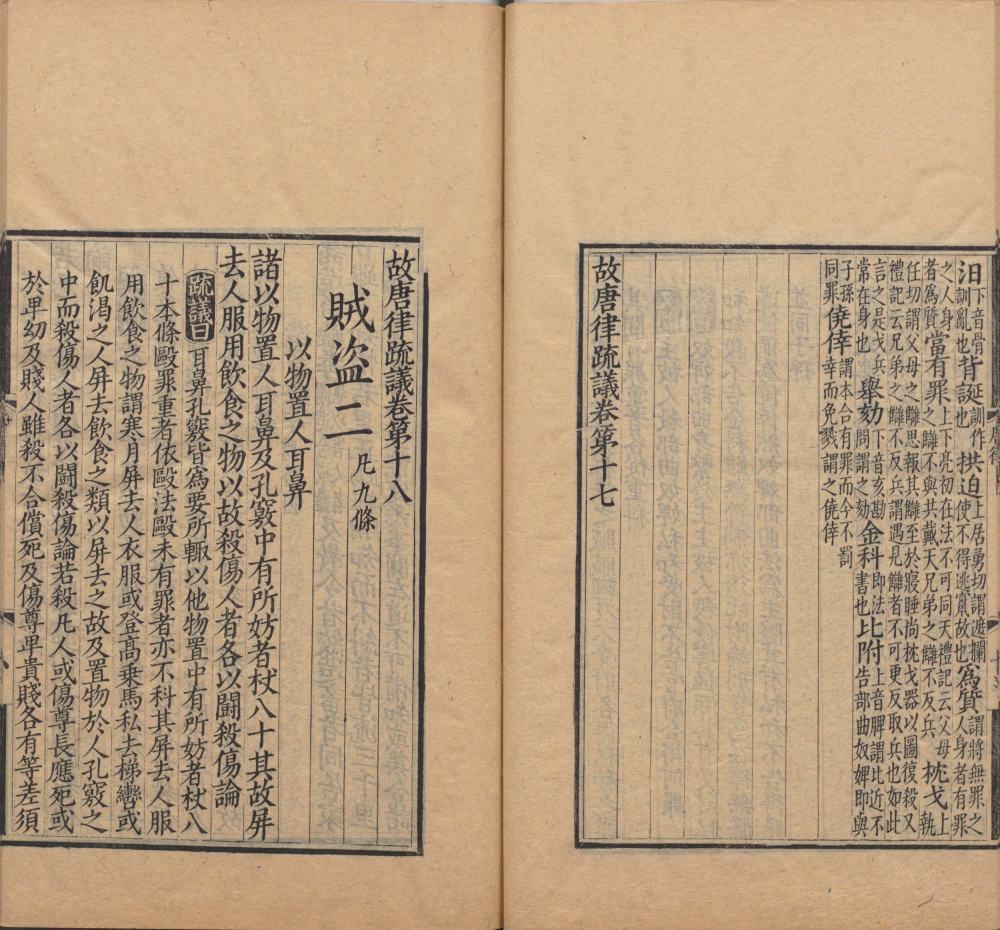 汩下音骨訓亂也背誕訓作也拱迫上居勇切謂遮攔使不得逃竄故也為質謂將無罪之人身者有罪
之人身者為質當有罪上下亮初在法不可同天禮記云父母之讎不與共戴天兄弟之讎不反兵枕戈上執
任切謂父母之讎思報其讎至於寢睡尚枕戈器以圖復殺又禮記云兄弟之讎不反兵謂遇見讎者不可更反取兵也如此
言之是戈兵常在身也舉劾下音亥勘問謂之劾金科即法書也比附上音脾謂比近不告部曲奴婢即與
子孫同罪僥倖謂本合有罪而今不罰幸而免戮謂之僥倖
故唐律疏議卷第十七
故唐律疏議卷第十八
賊盜二凡九條
以物置人耳鼻
諸以物置人耳鼻及孔竅中有所妨者杖八十其故屏
去人服用飲食之物以故殺傷人者各以鬭殺傷論
疏議曰耳鼻孔竅皆為要所輙以他物置中有所妨者杖八
十本條毆罪重者依毆法毆未有罪者亦不科其屏去人服
用飲食之物謂寒月屏去人衣服或登高乘馬私去梯轡或
飢渴之人屏去飲食之類以屏去之故及置物於人孔竅之
中而殺傷人者各以鬭殺傷論若殺凡人或傷尊長應死或
於卑幼及賤人雖殺不合償死及傷尊卑貴賤各有等差須